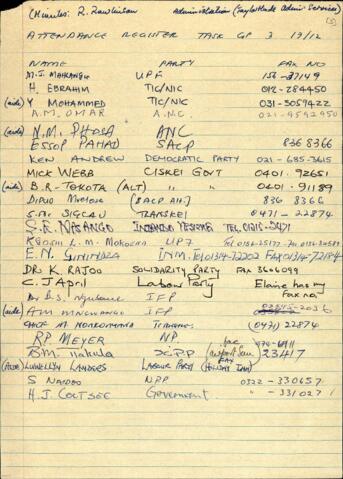 (Minutes: R. Rawlinson Administration (Taylormade Admin Services)
(3)
ATTENDANCE REGISTER TASK GP 3 19/12
NAME PARTY FAX NO
M.J. MAHLANGU UPF 156-37149
H. EBRAHIM TIC/NIC 012-284450
(aide) Y MOHAMMED TIC/NIC 031-3059422
A.M. OMAR A.N.C. 021-9592950
(aide) N.M. PHOSA ANC
ESSOP PAHAD SACP 836 8366
KEN ANDREW DEMOCRATIC PARTY 021-685-3615
MICK WEBB CISKEI GOVT 0401-92651
(aide) B.R. TOKOTA (ALT) " " 0401-91189
(SACP Alt.) 836 8366
S.M. SIGCAU TRANSKEI 0471-22874
S.E. MABANGO INYANDZA YESIZWE TEL
UPF Tel
E.N. GININDZA INM. Tel 01314-72202 FAX 01314-72184
DR K RAJOO SOLIDARITY PARTY FAX 3606099
C. J April Labour Party Elaine has my Fax no
Dr B.S. Ngubane IFP
(aide) A M MNCWANGO IFP
CHIEF M NONKONYANA (0471) 22874
R.P. MEYER NP fax
B.M. DIPP 23417
(Aide) LLEWELLYN LANDERS LABOUR PARTY (HOLIDAY INN)
S NAIDOO NPP 0322-330657
H.J. COETSEE Government " -331027